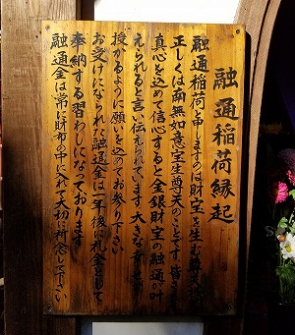 融通稲荷縁起
融通稲荷と申しますのは財宝を生む尊天で
正しくは南無如意宝生尊天のことです 皆さまが
真心を込めて信心すると金銀財宝の融通が叶
えられると言い伝えられています 大きな幸せを
授かるように願いを込めてお参り下さい
お受けになられた融通金は一年後お礼金として
奉納する習わしになっております
融通金は常に財布の中に入れ大切に所念して下さい